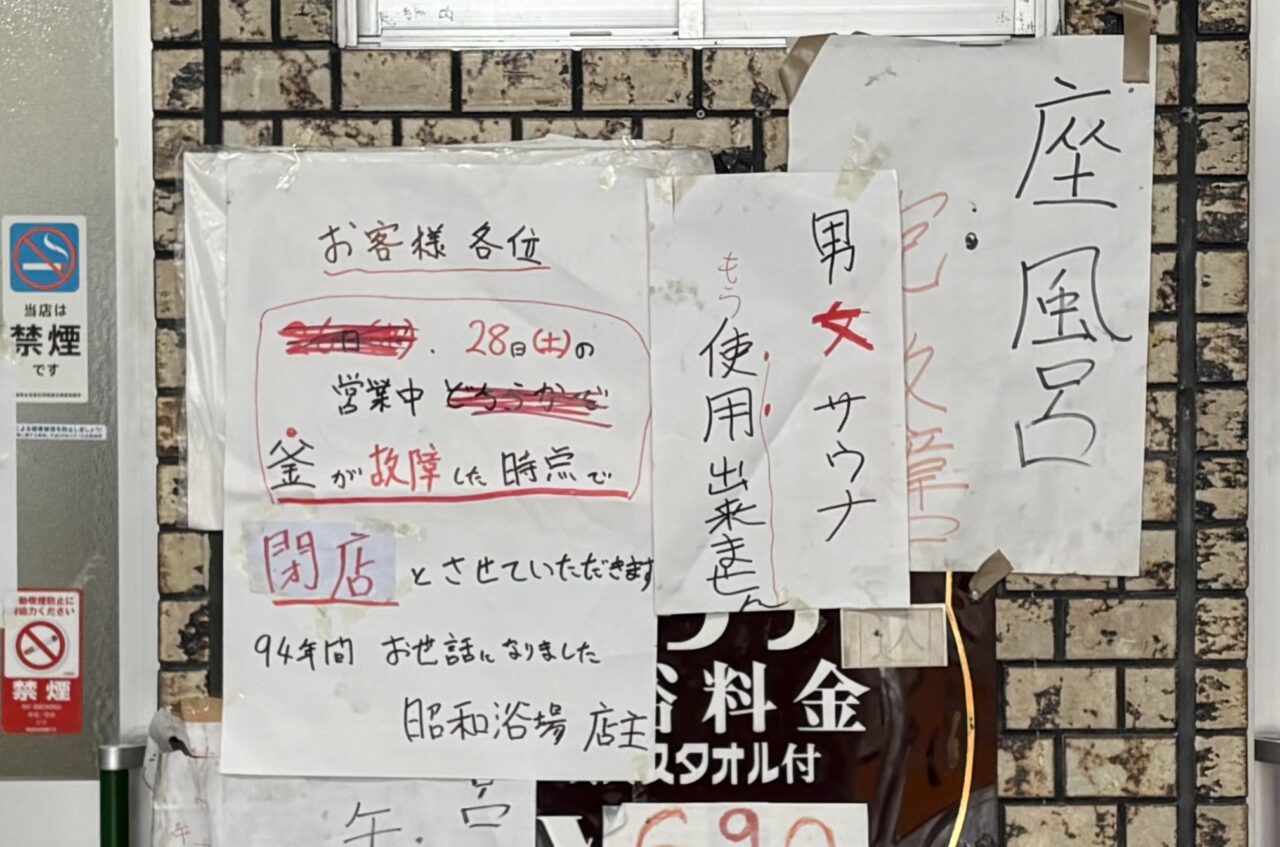 お客様 各位
28日(土)の
営業中
釜が故障した時点で
閉店とさせていただきます
94年間 お世話になりました
昭和浴場 店主
男女サウナ
もう使用出来ません
座風呂
故障中
料金
タオル付
690
当店は
禁煙
です
禁煙